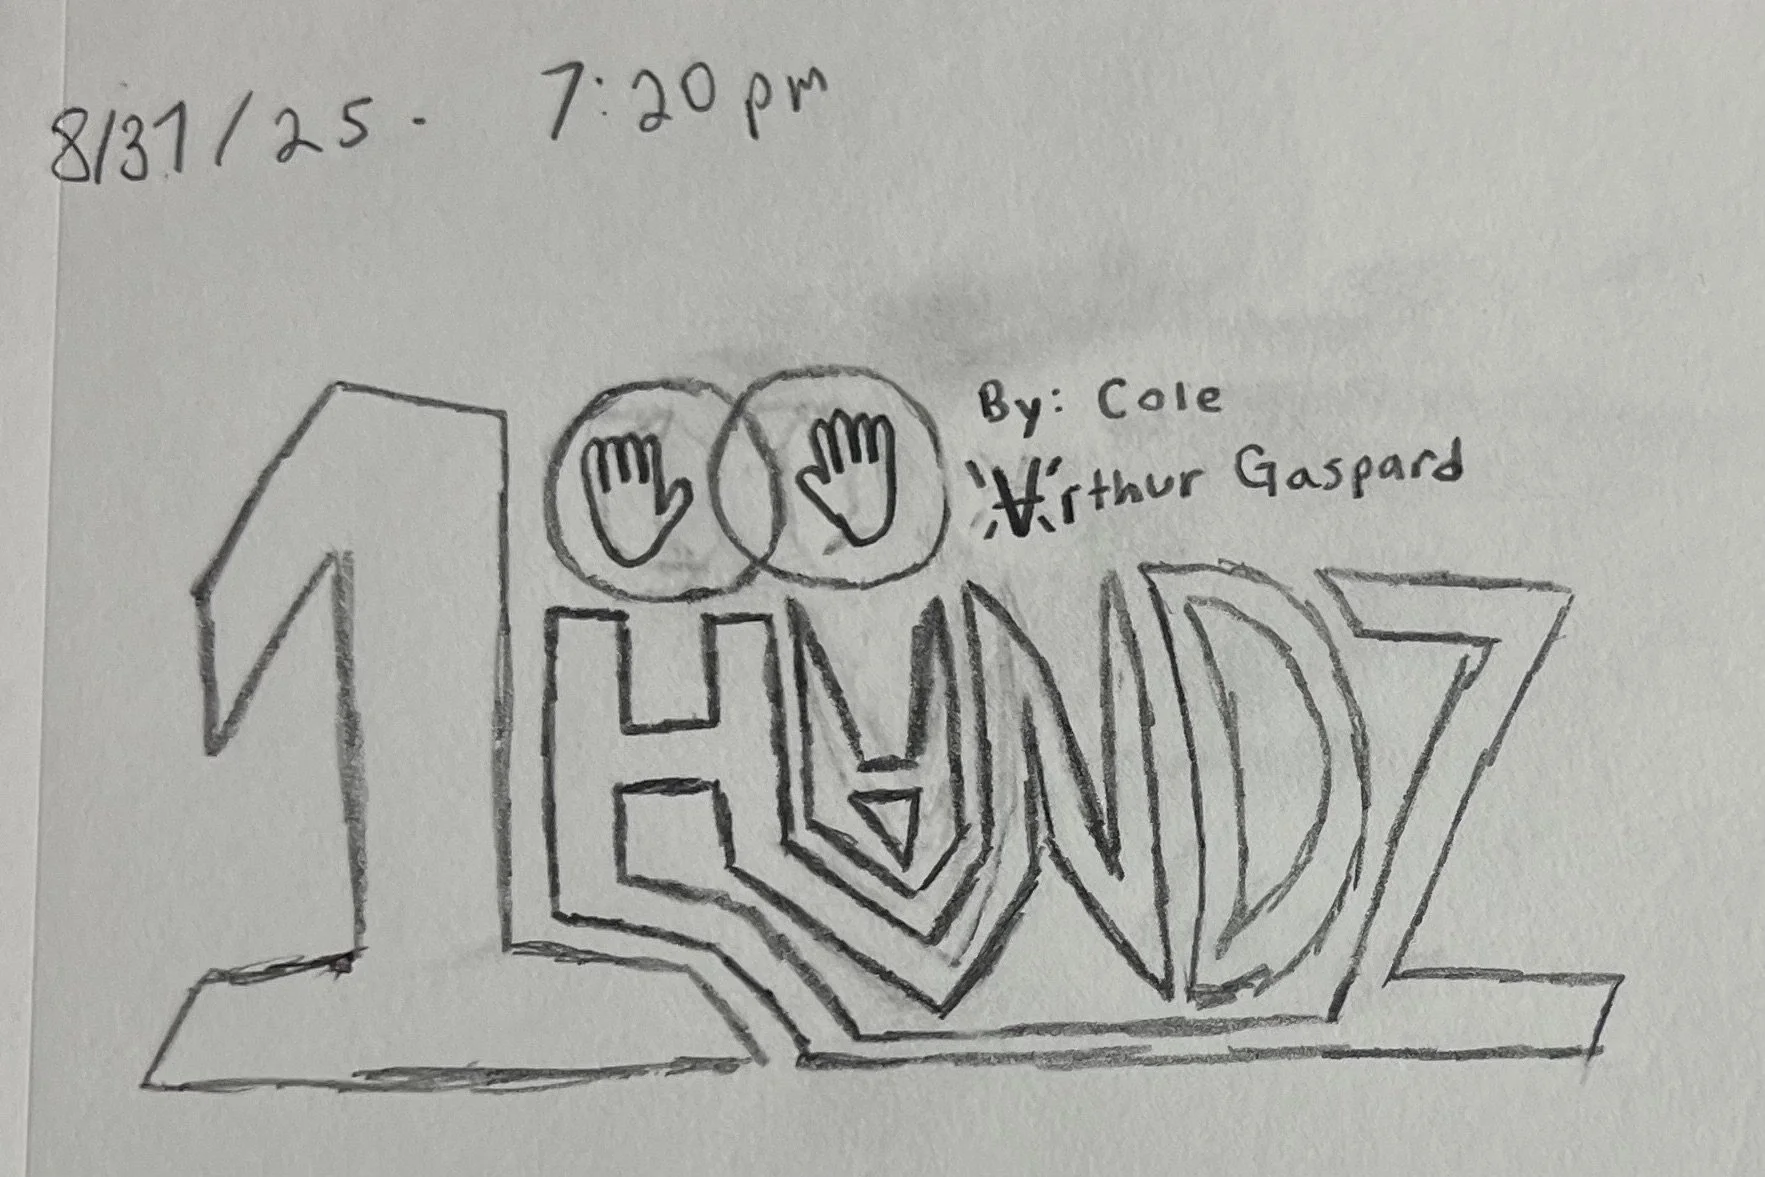 8/31/25. 7:20pm
By: Cole
Arthur Gaspard
1HANDZ